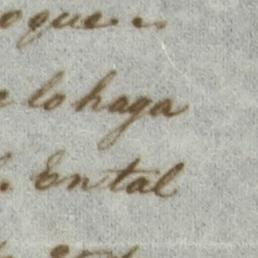 oque
lo haga
En tal